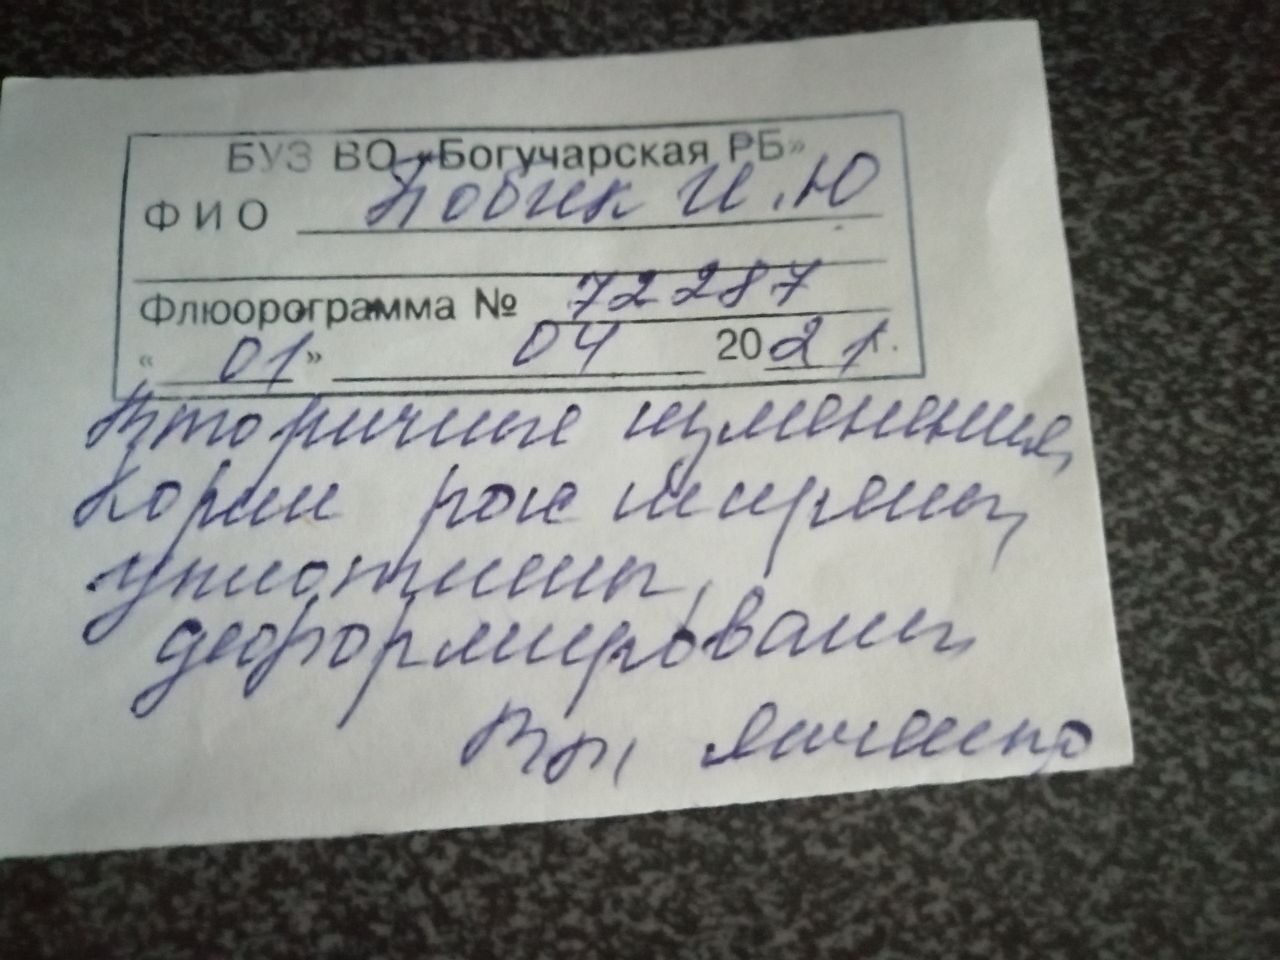 БУЗ ВО «Богучарская РБ»
ФИО Бобик И.Ю
Флюорограмма № 72287
«01» 04 2021г.
Вторичные изменения,
Корни расширены,
уплотнены,
деформированы
Вр,